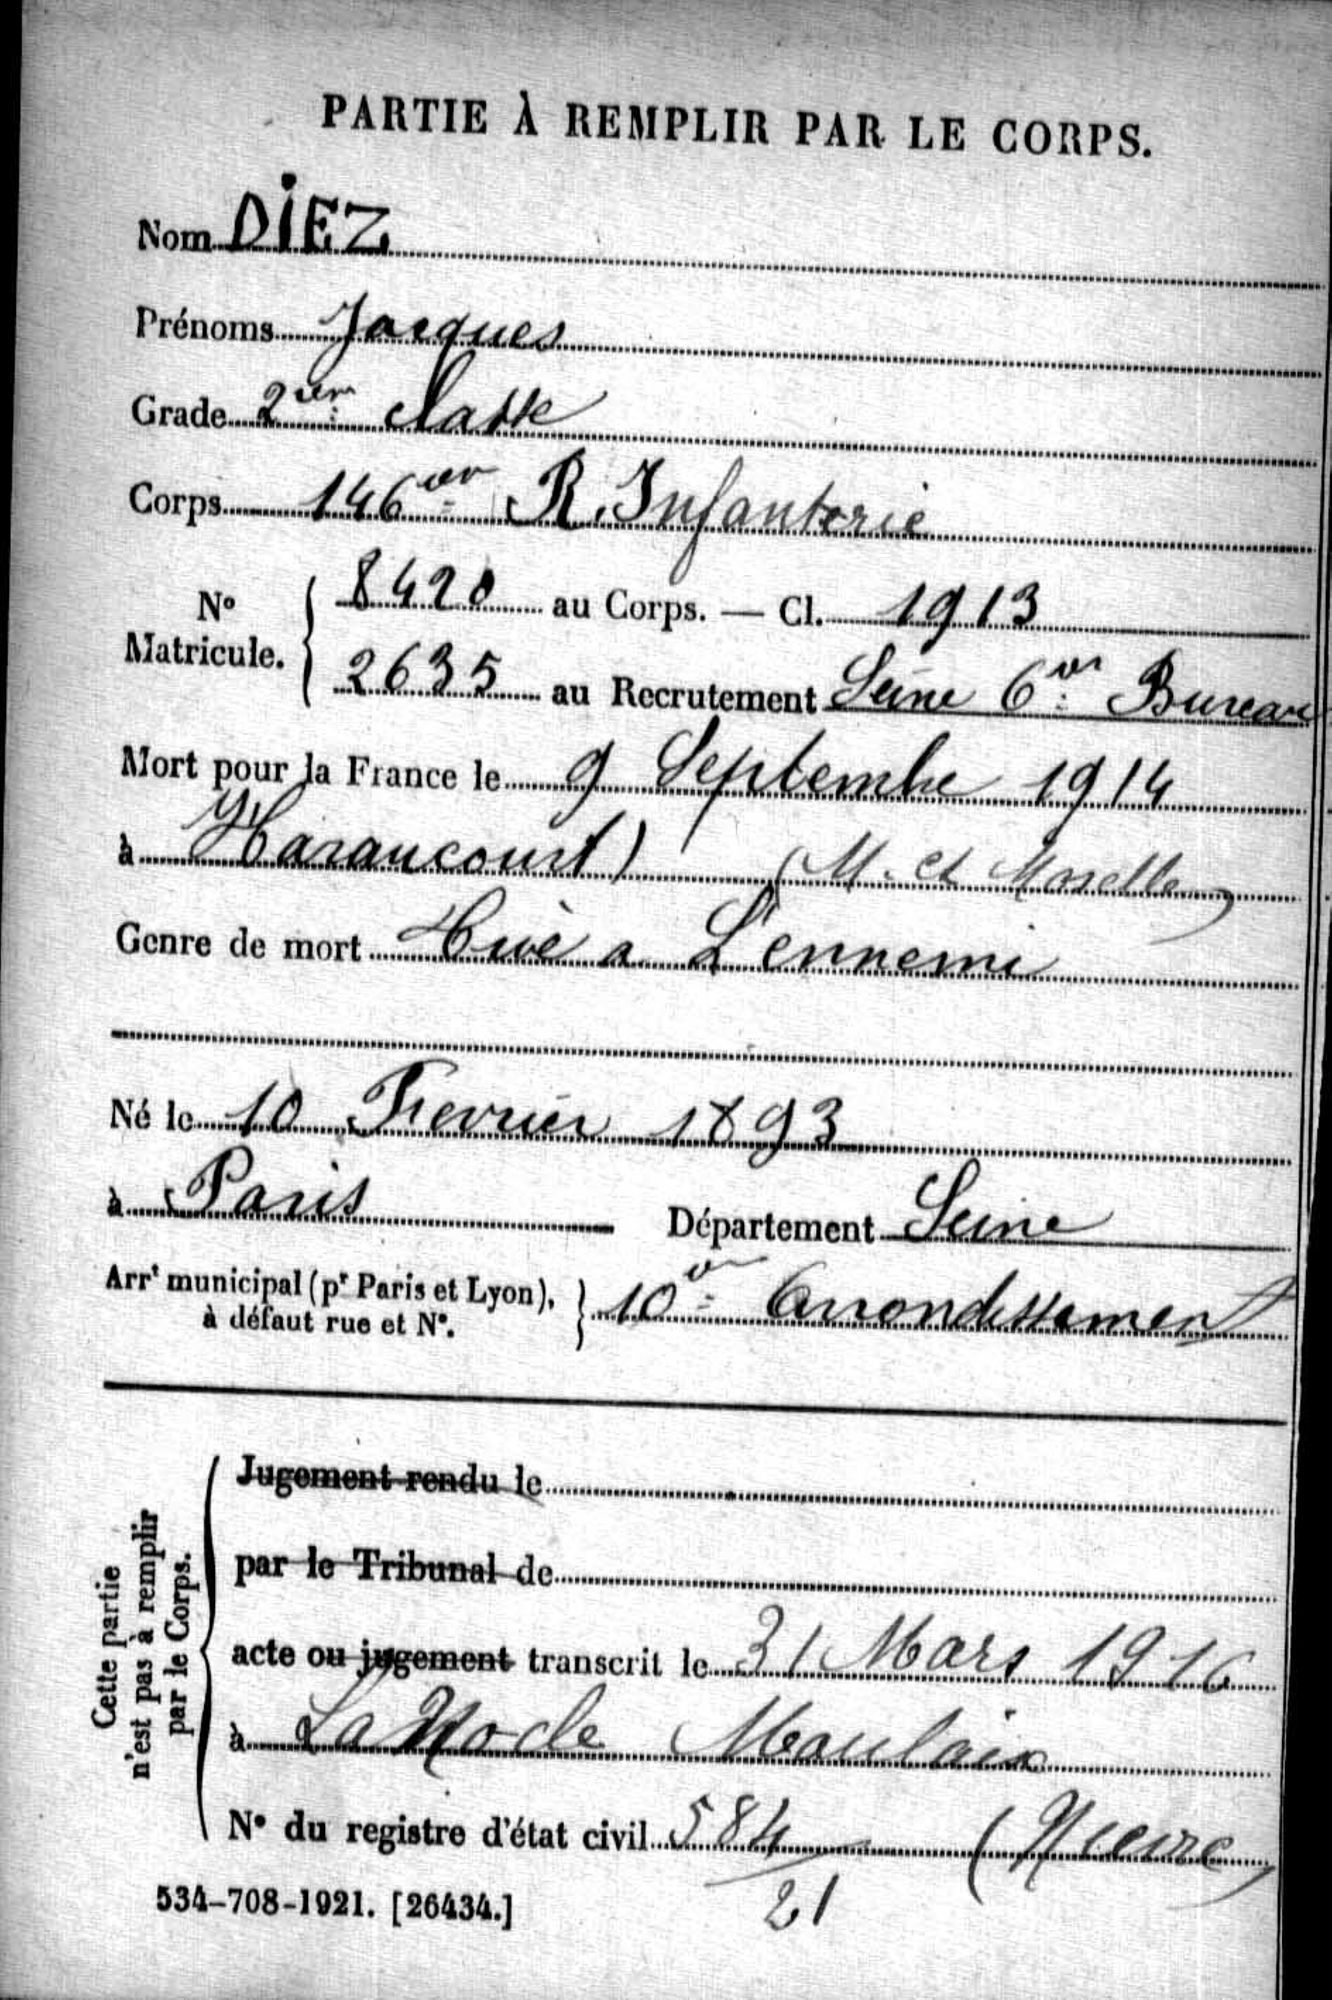 PARTIE À REMPLIR PAR LE CORPS.
Nom DIEZ
Prénoms Jacques
Grade 2em classe
Corps 146em R. Infanterie
No Matricule. { 8420 au Corps. — Cl. 1913
2635 au Recrutement Seine 6em Bureau
Mort pour la France le 9 Septembre 1914
à Haraucourt) (M. et Moselle)
Genre de mort Tué a L'ennemi
Né le 10 Fevrier 1893
à Paris Département Seine
Arrt municipal (pr Paris et Lyon), à défaut rue et No. } 10em Arrondissement
Cette partie n'est pas à remplir par le Corps.
Jugement rendu le
par le Tribunal de
acte ou jugement transcrit le 31 Mars 1916
à La Nocle Maulaix
No du registre d'état civil 584/21 (Nievre)
534-708-1921. [26434.]